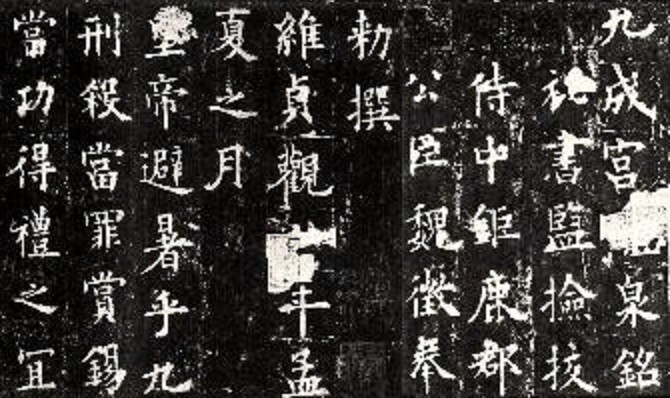 九成宮泉銘
祕書監撿挍
侍中鉅鹿郡
公臣魏徵奉
勅撰
維貞觀年孟
夏之月
皇帝避暑乎九
刑殺當罪賞錫
當功得禮之宜